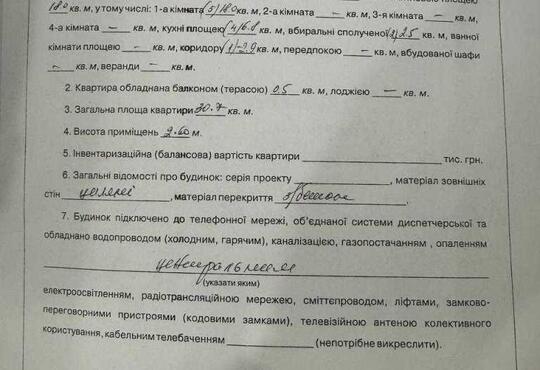 18.0 кв. м, у тому числі: 1-а кімната (5)/18.0 кв. м, 2-а кімната — кв. м, 3-я кімната — кв. м,
4-а кімната — кв. м, кухні площею (4)/6.8 кв. м, вбиральні сполученої (2)/2.5 кв. м, ванної
кімнати площею — кв. м, коридору (1)/-2.9 кв. м, передпокою — кв. м, вбудованої шафи
— кв. м, веранди — кв. м.
2. Квартира обладнана балконом (терасою) 0.5 кв. м, лоджією — кв. м.
3. Загальна площа квартири 30.7 кв. м.
4. Висота приміщень 2.60 м.
5. Інвентаризаційна (балансова) вартість квартири ____ тис. грн.
6. Загальні відомості про будинок: серія проекту ____, матеріал зовнішніх
стін цегляні, матеріал перекриття з/бетон.
7. Будинок підключено до телефонної мережі, об'єднаної системи диспетчерської та
обладнано водопроводом (холодним, гарячим), каналізацією, газопостачанням , опаленням
центральним
(указати яким)
електроосвітленням, радіотрансляційною мережею, сміттєпроводом, ліфтами, замково-
переговорними пристроями (кодовими замками), телевізійною антеною колективного
користування, кабельним телебаченням ____ (непотрібне викреслити).